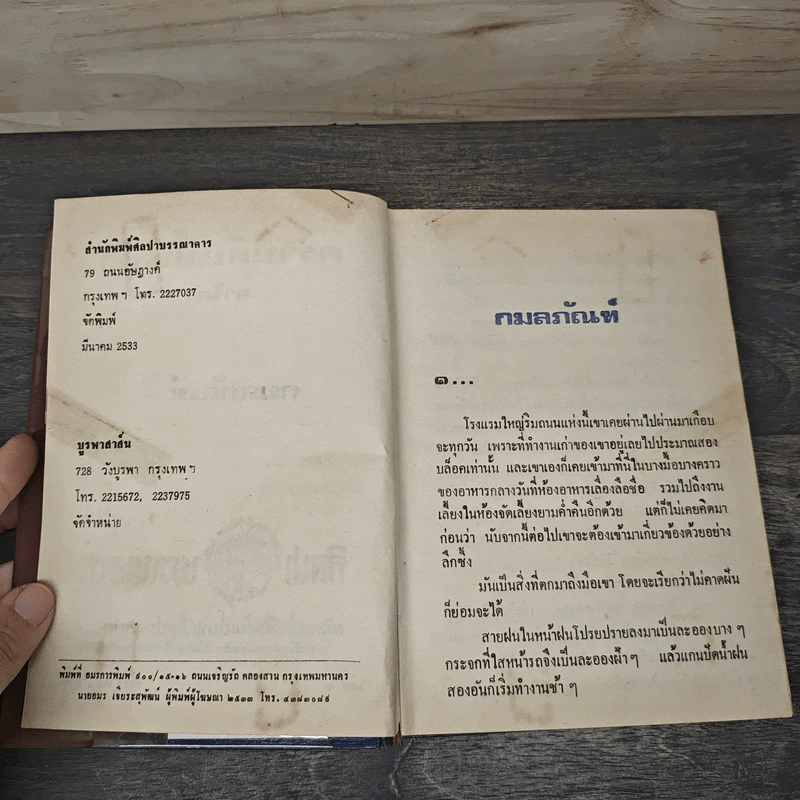 สำนักพิมพ์ศิลปาบรรณาคาร
79 ถนนอัษฎางค์
กรุงเทพฯ โทร. 2227037
จัดพิมพ์
มีนาคม 2533
บูรพาสาส์น
728 วังบูรพา กรุงเทพฯ
โทร. 2215672, 2237975
จัดจำหน่าย
พิมพ์ที่ อมรการพิมพ์ ๙๐๐/๑๕-๑๖ ถนนเจริญรัถ คลองสาน กรุงเทพมหานคร
นายอมร เจียระสุพัฒน์ ผู้พิมพ์ผู้โฆษณา ๒๕๓๓ โทร.
กมลภัณฑ์
๑...
โรงแรมใหญ่ริมถนนแห่งนี้เขาเคยผ่านไปผ่านมาเกือบ
จะทุกวัน เพราะที่ทำงานเก่าของเขาอยู่เลยไปประมาณสอง
บล็อคเท่านั้น และเขาเองก็เคยเข้ามาที่นี่ในบางมื้อบางคราว
ของอาหารกลางวันที่ห้องอาหารเลื่องลือชื่อ รวมไปถึงงาน
เลี้ยงในห้องจัดเลี้ยงยามค่ำคืนอีกด้วย แต่ก็ไม่เคยคิดมา
ก่อนว่า นับจากนี้ต่อไปเขาจะต้องเข้ามาเกี่ยวข้องด้วยอย่าง
ลึกซึ้ง
มันเป็นสิ่งที่ตกมาถึงมือเขา โดยจะเรียกว่าไม่คาดฝัน
ก็ย่อมจะได้
สายฝนในหน้าฝนโปรยปรายลงมาเป็นละอองบาง ๆ
กระจกที่ใสหน้ารถจึงเป็นละอองฝ้าๆ แล้วแกนปัดน้ำฝน
สองอันก็เริ่มทำงานช้า ๆ